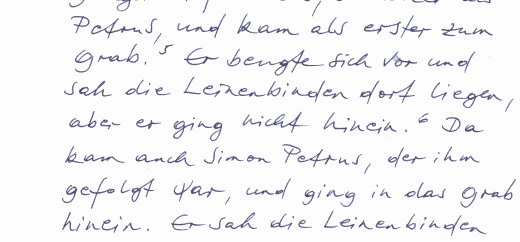 Petrus, und kam als erster zum
Grab. ⁵ Er beugte sich vor und
sah die Leinenbinden dort liegen,
aber er ging nicht hinein. ⁶ Da
kam auch Simon Petrus, der ihm
gefolgt war, und ging in das Grab
hinein. Er sah die Leinenbinden